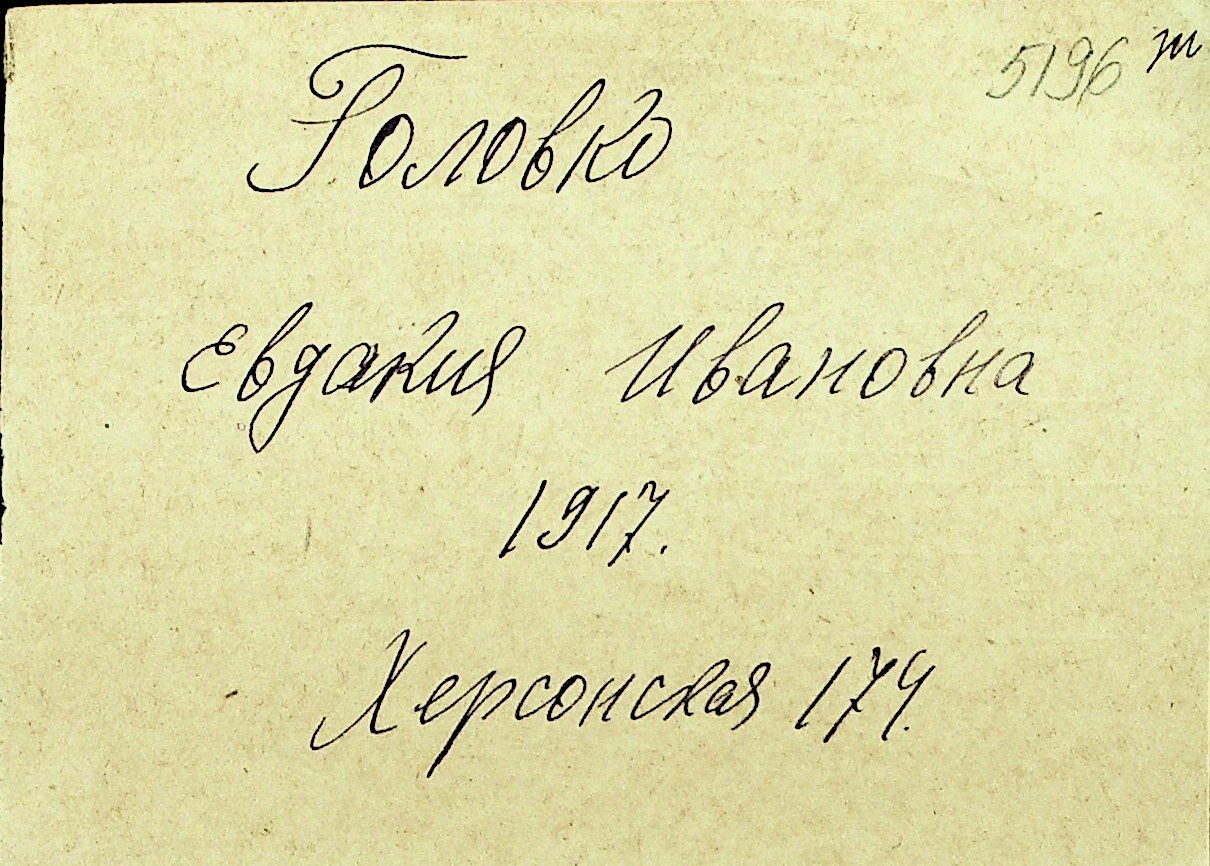 5196 т
Головко
Евдакия Ивановна
1917.
Херсонская 174.